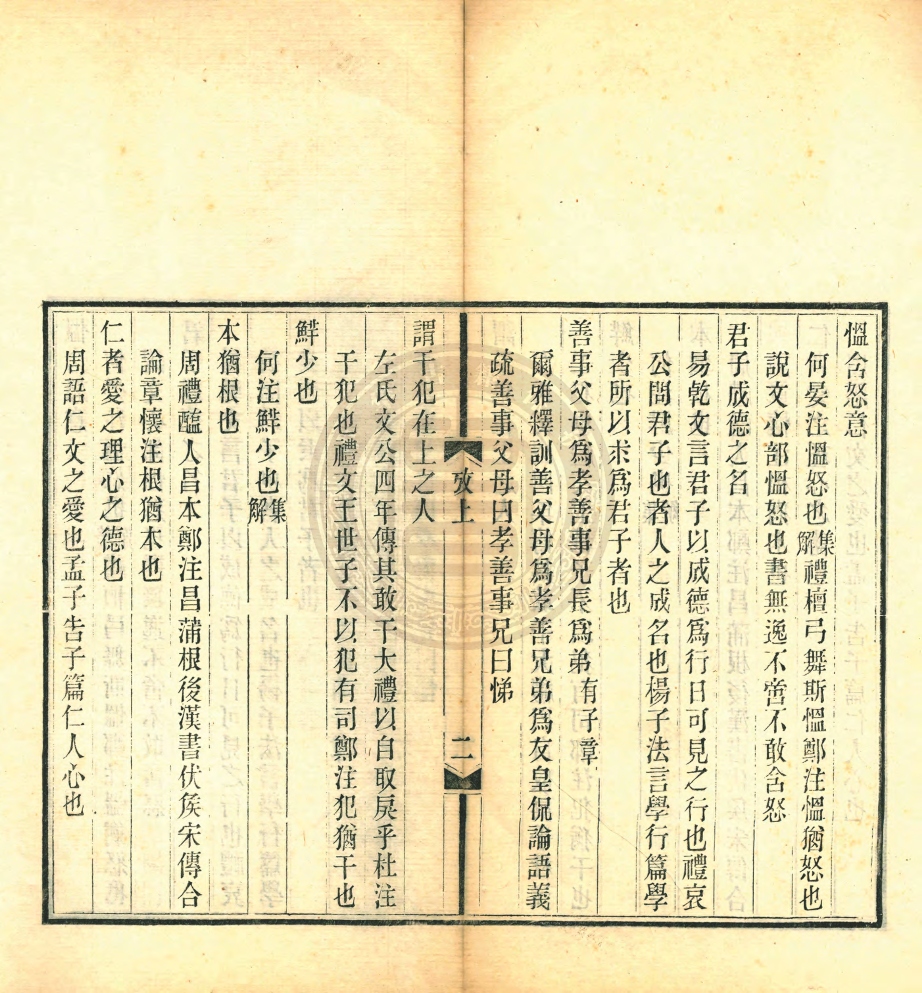 慍含怒意
何晏注慍怒也集解禮檀弓舞斯慍鄭注慍猶怒也
說文心部慍怒也書無逸不啻不敢含怒
君子成德之名
易乾文言君子以成德爲行日可見之行也禮哀
公問君子也者人之成名也楊子法言學行篇學
者所以求爲君子者也
善事父母爲孝善事兄長爲弟有子章
爾雅釋訓善父母爲孝善兄弟爲友皇侃論語義
疏善事父母曰孝善事兄曰悌
攷上
二
謂干犯在上之人
左氏文公四年傳其敢干大禮以自取戾乎杜注
干犯也禮文王世子不以犯有司鄭注犯猶干也
鮮少也
何注鮮少也集解
本猶根也
周禮醢人昌本鄭注昌蒲根後漢書伏侯宋傳合
論章懷注根猶本也
仁者愛之理心之德也
周語仁文之愛也孟子告子篇仁人心也